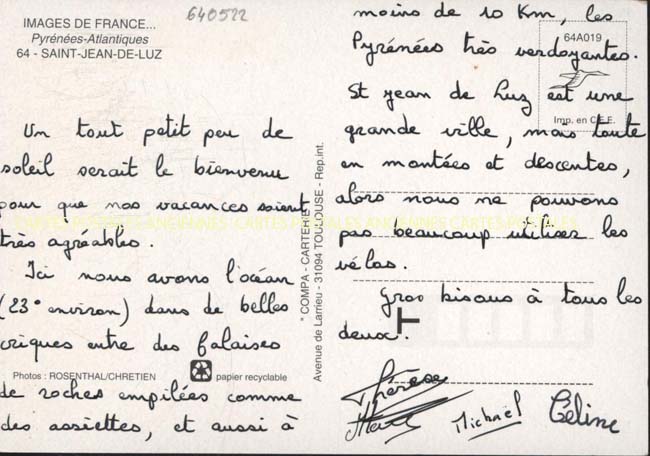 640522
IMAGES DE FRANCE...
Pyrénées-Atlantiques
64 - SAINT-JEAN-DE-LUZ
Un tout petit peu de
soleil serait le bienvenu
pour que nos vacances soient
très agréables.
Ici nous avons l'océan
(23° environ) dans de belles
criques entre des falaises
de roches empilées comme
des assiettes, et aussi à
Photos : ROSENTHAL/CHRETIEN
papier recyclable
" COMPA - CARTERIE
Avenue de Larrieu - 31094 TOULOUSE - Rep.int.
moins de 10 Km, les
Pyrénées très verdoyantes.
St jean de Luz est une
grande ville, mais toute
en montées et descentes,
alors nous ne pouvons
pas beaucoup utiliser les
vélos.
Gros bisous à tous les
deux.
Thérèse
Michaël
Céline
64A019
Imp. en C.E.E.
CARTES POSTALES ANCIENNES CARTES POSTALES ANCIENNES CARTES POSTALES